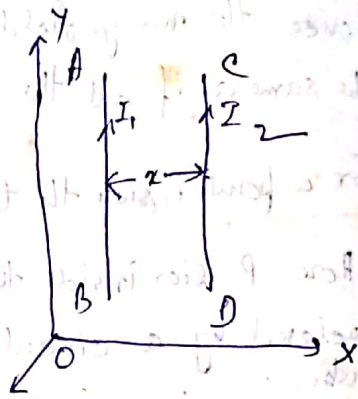 Y
A C
I₁ I₂
x
B D
O X